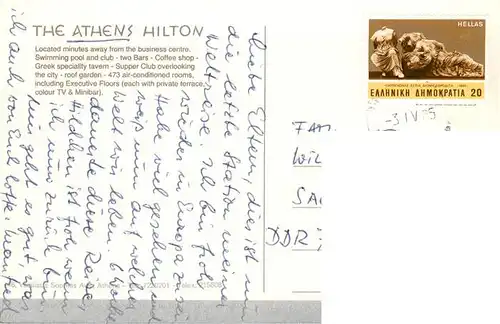 THE ATHENS HILTON
Located minutes away from the business centre.
Swimming pool and club - two Bars - Coffee shop -
Greek speciality tavern - Supper Club overlooking
the city - roof garden - 473 air-conditioned rooms,
including Executive Floors (each with private terrace,
colour TV & Minibar).
Liebe Eltern, dies ist nun
die letzte Station meiner
Weltreise. Ich bin froh
wieder in Europa zu sein
Habe viel gesehen und
weiß nun auf welcher
Welt wir leben. 6 Wochen
dauerte diese Reise.
ich bin froh wenn
ich wieder zurück bin
Mir geht es gut, was
ich auch von Euch hoffe. Manfred
HELLAS
ΕΛΛΗΝΙΚΗ ΔΗΜΟΚΡΑΤΙΑ 20
-3 IV
FAM
WIL
SA
DDR